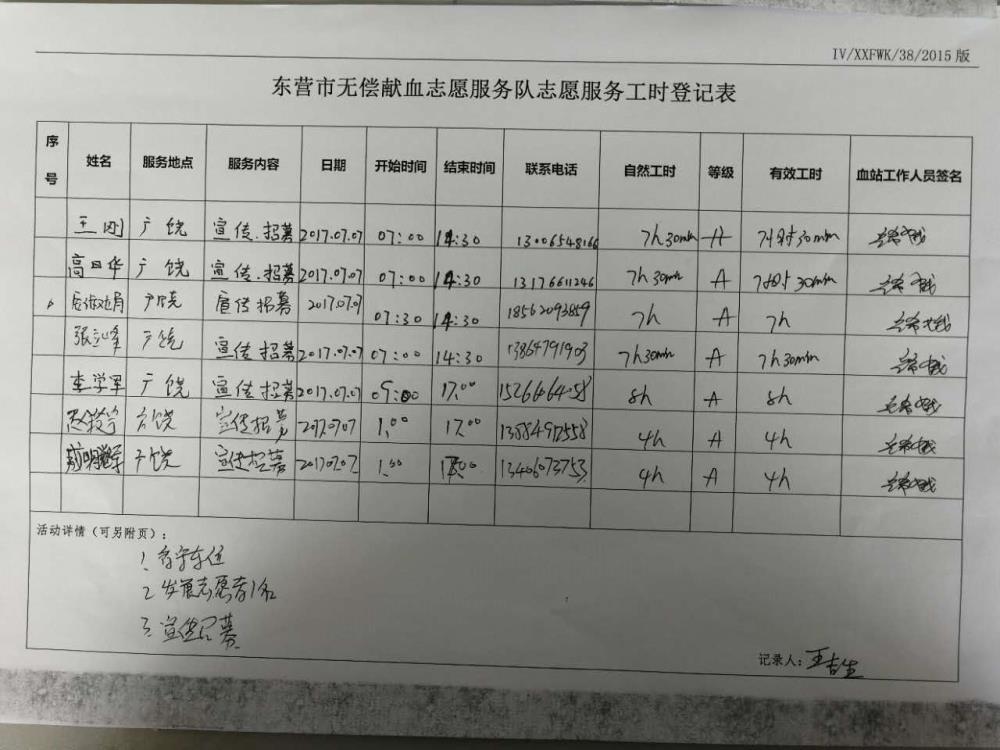 IV/XXFWK/38/2015版
东营市无偿献血志愿服务队志愿服务工时登记表
序号 姓名 服务地点 服务内容 日期 开始时间 结束时间 联系电话 自然工时 等级 有效工时 血站工作人员签名
王刚 广饶 宣传.招募 2017.07.07 07:00 14:30 13006548166 7h30min A 7小时30min
高日华 广饶 宣传.招募 2017.07.07 07:00 14:30 13176611246 7h30min A 7小时30min
广饶 宣传招募 2017.07.07 07:30 14:30 18562093859 7h A 7h
张立峰 广饶 宣传.招募 2017.07.07 07:00 14:30 13864791903 7h30min A 7h30min
李学军 广饶 宣传.招募 2017.07.07 09:00 17:00 15266464058 8h A 8h
广饶 宣传招募 2017.07.07 1:00 17:00 13884912558 4h A 4h
广饶 宣传招募 2017.07.07 1:00 13406073753 4h A 4h
活动详情（可另附页）：
1.
2 发展志愿者1名
3.宣传招募
记录人：王吉生